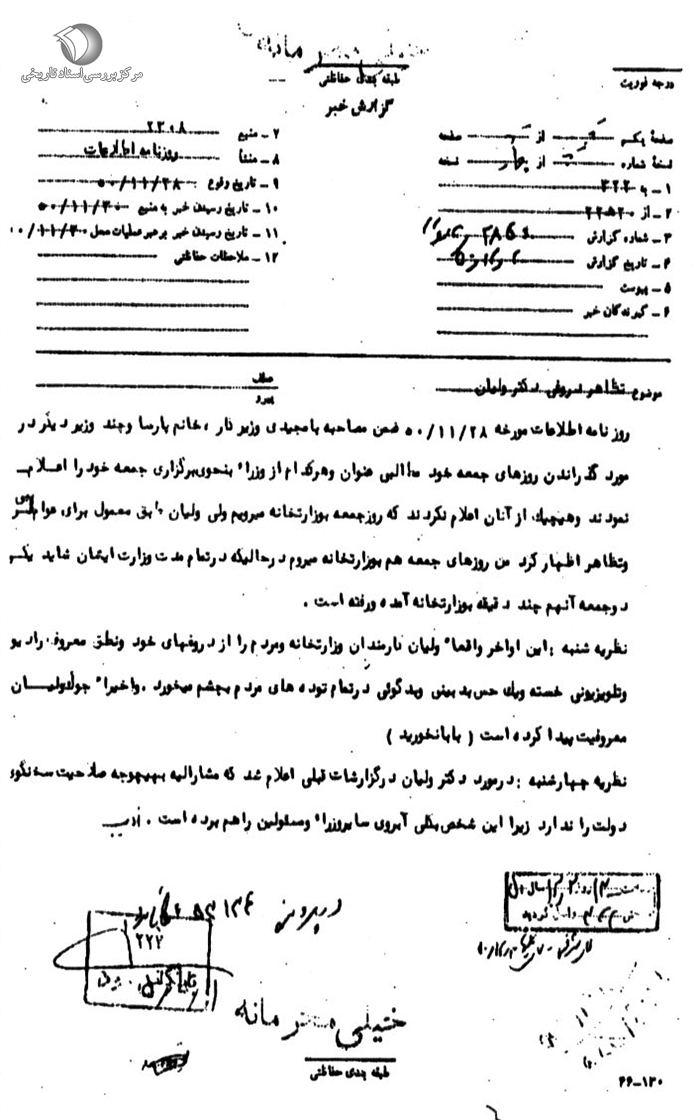 مرکز بررسی اسناد تاریخی
طبقه بندی حفاظتی
گزارش خبر
درجه فوریت
صفحهٔ یکم از صفحه
نسخهٔ شماره از چهار نسخه
۱ - به ۳۲۲
۲ - از ۲۲۵۲۰
۳ - شماره گزارش
۴ - تاریخ گزارش
۵ - پیوست
۶ - گیرندگان خبر
۷ - منبع ۲۳۰۸
۸ - منشأ روزنامه اطلاعات
۹ - تاریخ وقوع ۵۰/۱۱/۲۸
۱۰ - تاریخ رسیدن خبر به منبع ۵۰/۱۱/۳۰
۱۱ - تاریخ رسیدن خبر برهبر عملیات محل ۵۰/۱۱/۳۰
۱۲ - ملاحظات حفاظتی
موضوع تظاهر دروغی دکتر ولیان
عطف
پیرو
روزنامه اطلاعات مورخه ۵۰/۱۱/۲۸ ضمن مصاحبه با مجیدی وزیر کار ، خانم پارسا و چند وزیر دیگر در
مورد گذراندن روزهای جمعه خود مطالبی عنوان و هرکدام از وزراء بنحوی برگزاری جمعه خود را اعلام
نمودند و هیچیک از آنان اعلام نکردند که روز جمعه بوزارتخانه میرویم ولی ولیان طبق معمول برای عوام فریبی
و تظاهر اظهار کرد من روزهای جمعه هم بوزارتخانه میروم درحالیکه در تمام مدت وزارت ایشان شاید یک
دو جمعه آنهم چند دقیقه بوزارتخانه آمده و رفته است .
نظریه شنبه : این اواخر واقعاً ولیان کارمندان وزارتخانه و مردم را از دروغهای خود و نطق معروف رادیو
و تلویزیونی خسته و یک حس بدبینی و بدگوئی در تمام توده های مردم بچشم میخورد . و اخیراً جوک ولیان
معروفیت پیدا کرده است ( بابا نخورید )
نظریه چهارشنبه : در مورد دکتر ولیان در گزارشات قبلی اعلام شد که مشارالیه بهیچوجه صلاحیت سخنگوی
دولت را ندارد زیرا این شخص بکلی آبروی سایر وزراء و مسئولین را هم برده است .
در پرونده
۲۲۲
خیلی محرمانه
طبقه بندی حفاظتی
۶۶-۱۳۰